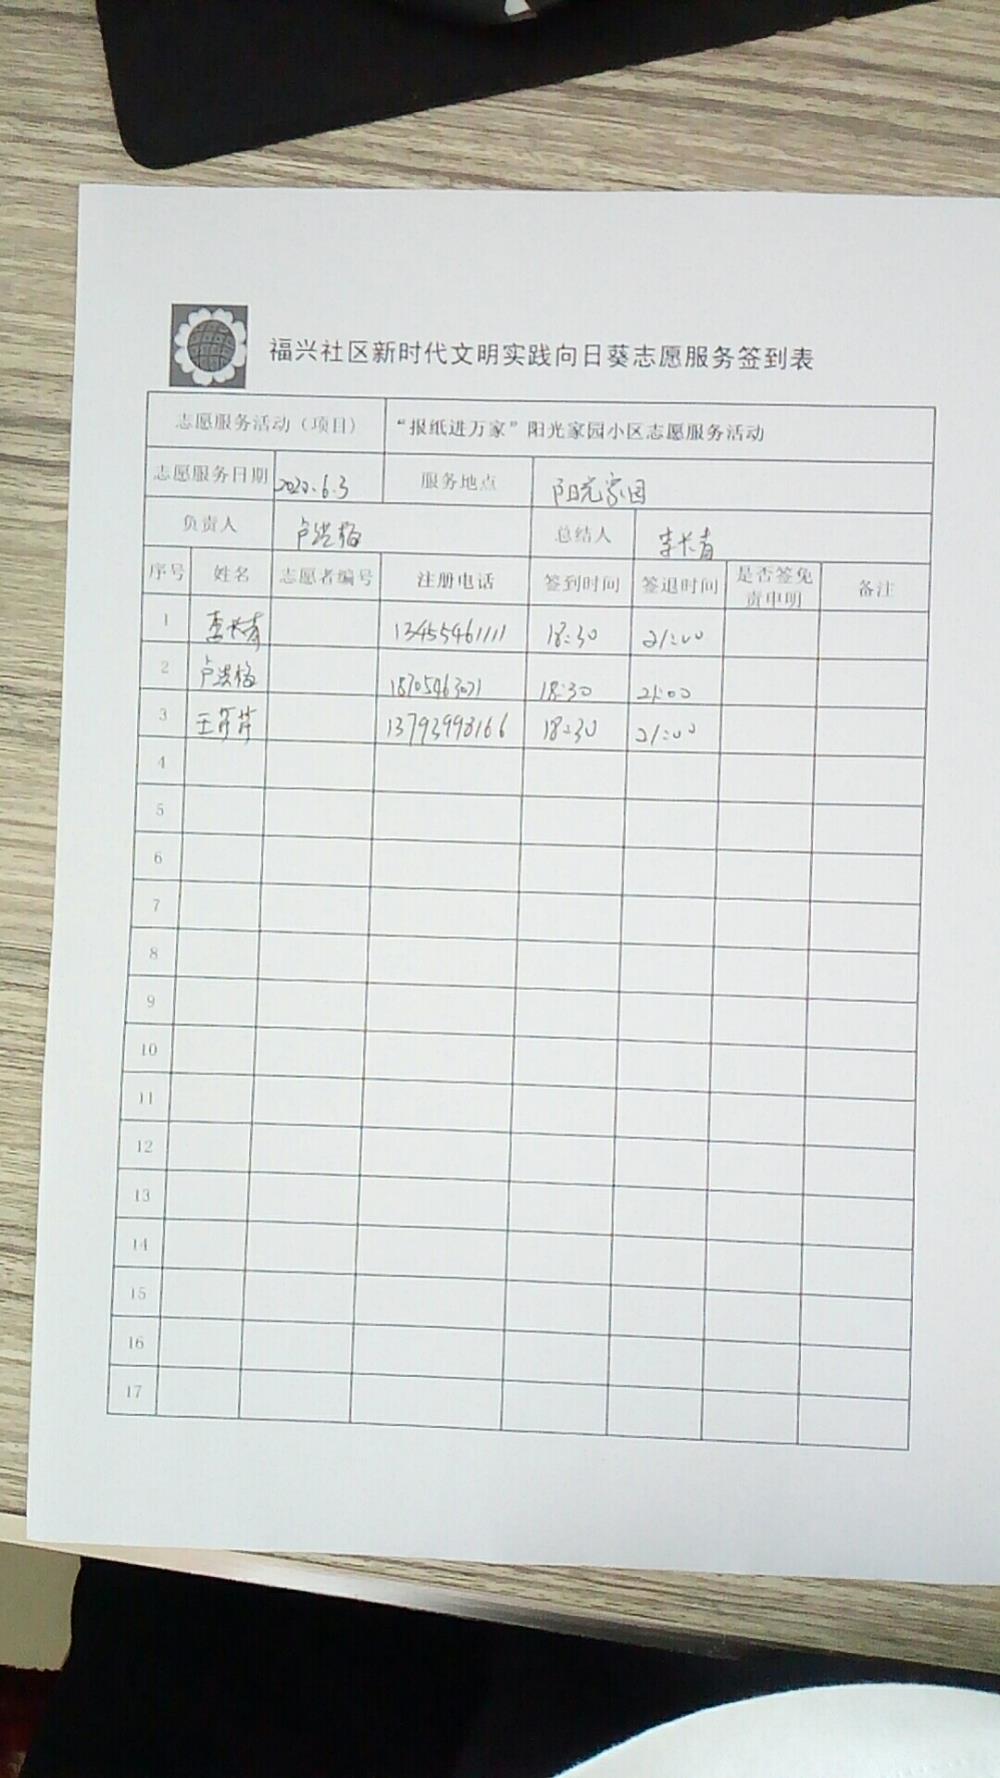 福兴社区新时代文明实践向日葵志愿服务签到表
志愿服务活动（项目） “报纸进万家”阳光家园小区志愿服务活动
志愿服务日期 2020.6.3 服务地点 阳光家园
负责人 卢洪梅 总结人 李长青
序号 姓名 志愿者编号 注册电话 签到时间 签退时间 是否签免责申明 备注
1 李长青 13455461111 18:30 21:00
2 卢洪梅 18:30 21:00
3 13793998166 18:30 21:00
4
5
6
7
8
9
10
11
12
13
14
15
16
17